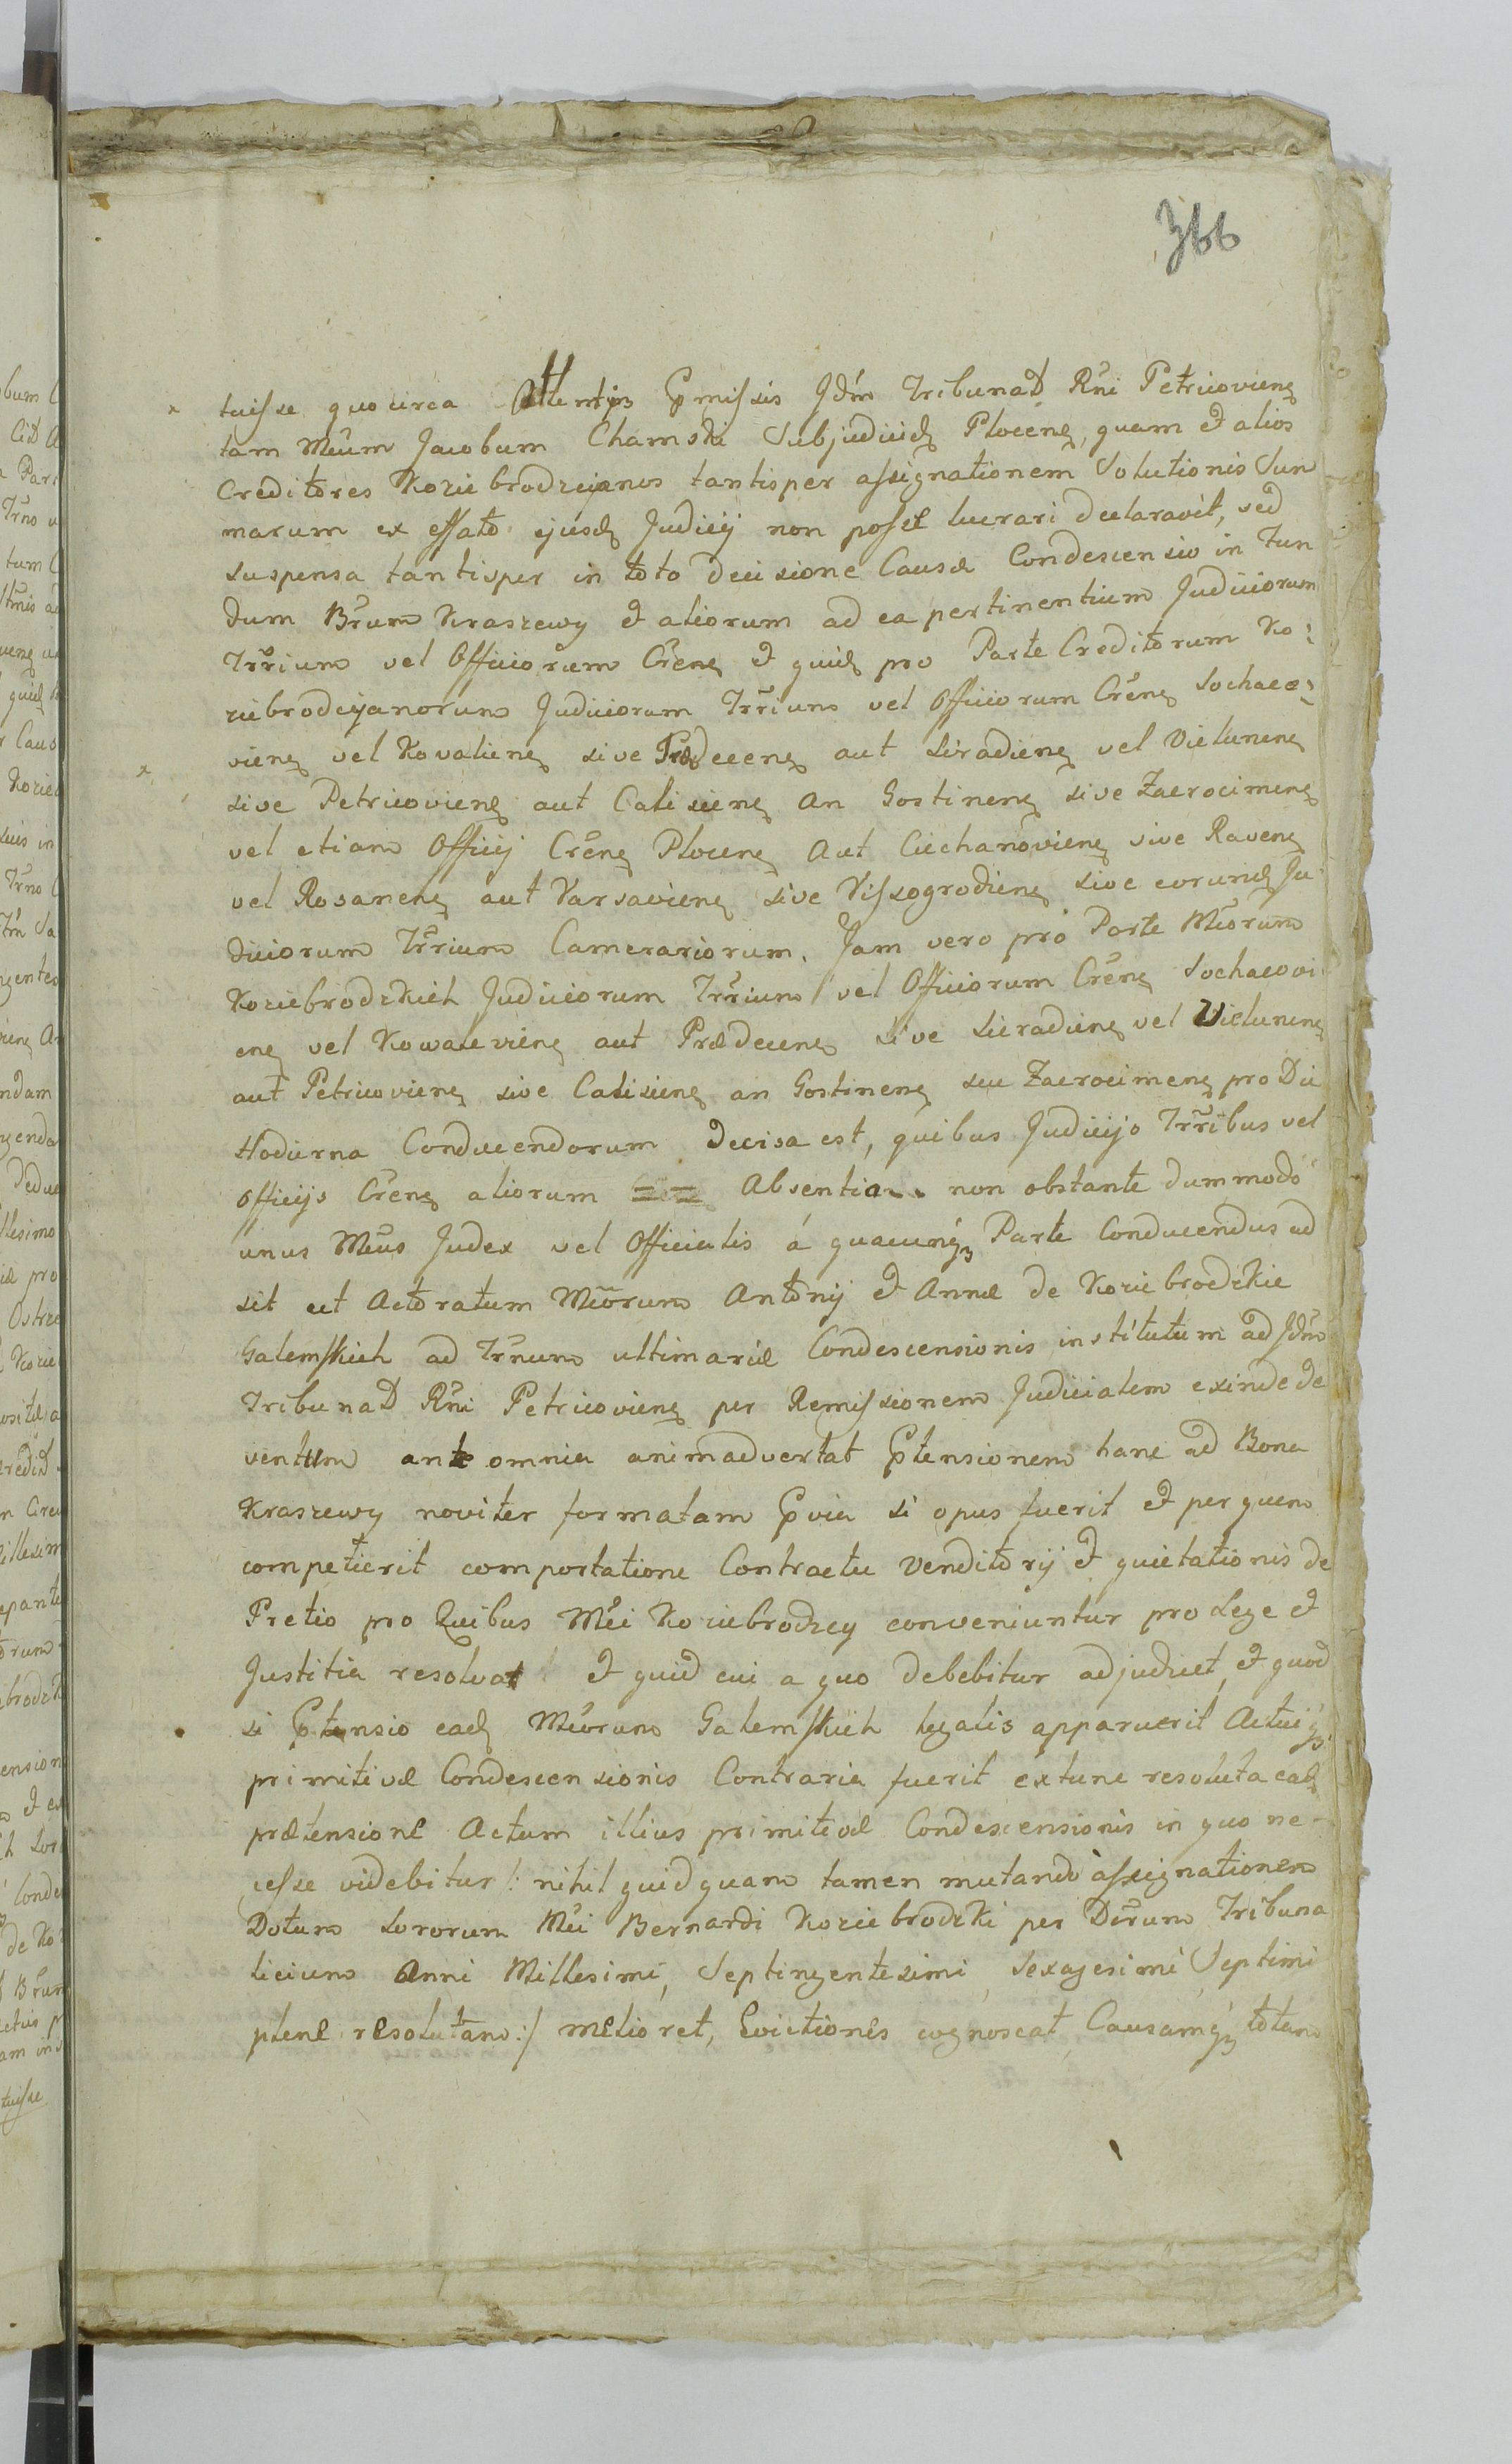 366
tuisse quocirca Attentis Pmissis Idm Tribunal Rni Petricovien
tam Mcum Jacobum Chamski Subjudicem Plocen, quam et alios
Creditores Koziebrodzcianos tantisper assignationem Solutionis Sum
marum ex effato ejusd Judicij non posse lucrari declaravit, sed
suspensa tantisper in toto decisione Causæ Condescensio in Fun
dum Brum Kraszewy et aliorum ad ea pertinentium Judiciorum
Trrium vel Officiorum Cren et quid pro Parte Creditorum Ko:
ziebrodcijanorum Judiciorum Trrium vel Officiorum Cren Sochacz:
vien vel Kovalien sive Prædecen aut Siradien vel Vielunen
sive Petricovien aut Calisien an Gostinen sive Zacrocimen
vel etiam Officij Cren Plocen Aut Ciechanovien sive Raven
vel Rosanen aut Varsavien sive Vissogrodien sive eorund Ju
diciorum Trrium Camerariorum. Jam vero pro Parte Mcorum
Koziebrodzkich Judiciorum Trrium vel Officiorum Cren Sochacovi
en vel Kowalevien aut Prædecen sive Sieradien vel Vielunen
aut Petricovien sive Calisien an Gostinen seu Zacrocimen pro Die
Hodierna Conducendorum Decisa est, quibus Judicijs Trribus vel
Officijs Cren aliorum Absentia non obstante dummodo
unus Mcus Judex vel Officialis á quacunq Parte Conducendus ad
sit ut Actoratum Mcorum Antonij et Annæ de Koziebrodzkie
Galemskich ad Trnum ultimariæ Condescensionis institutum ad Idm
Tribunal Rni Petricovien per Remissionem Judicialem exinde de
ventum ante omnia animadvertat Ptensionem hanc ad Bona
Kraszewy noviter formatam Pvia si opus fuerit et per quem
competierit comportatione Contractu Venditorij et quietationis de
Pretio pro Quibus Mci Koziebrodzcy conveniuntur pro Lege et
Justitia resolvat et quid cui a quo debebitur adjudicet, et quod
si Ptensio ead Mcorum Galemskich legalis apparuerit Actuiq
primitivæ Condescensionis Contraria fuerit extunc resoluta ead
prætensione Actum illius primitivæ Condescensionis in quo ne-
cesse videbitur /: nihil quidquam tamen mutando assignationem
Dotum Sororum Mci Bernardi Koziebrodzki per Dcrum Tribuna
licium Anni Millesimi, Septingentesimi, Sexagesimi Septimi
plene resolutam :/ melioret, Evictiones cognoscat, Causamq totam